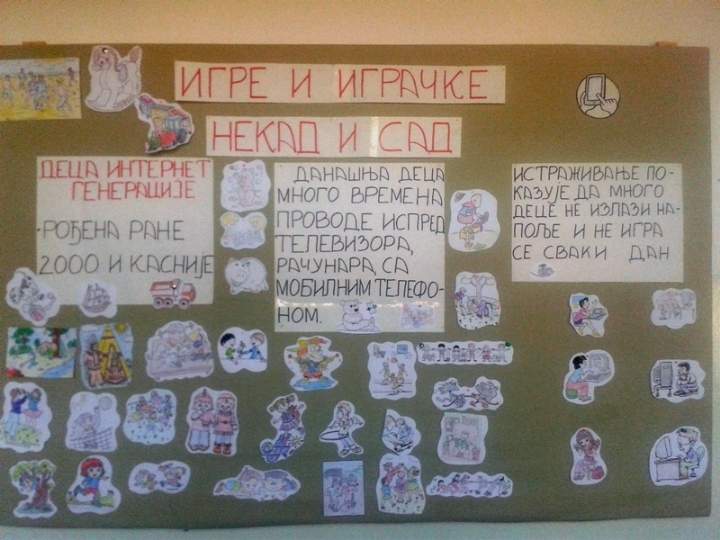 ИГРЕ И ИГРАЧКЕ
НЕКАД И САД
ДЕЦА ИНТЕРНЕТ
ГЕНЕРАЦИЈЕ
-РОЂЕНА РАНЕ
2000 И КАСНИЈЕ
ДАНАШЊА ДЕЦА
МНОГО ВРЕМЕНА
ПРОВОДЕ ИСПРЕД
ТЕЛЕВИЗОРА,
РАЧУНАРА, СА
МОБИЛНИМ ТЕЛЕФО-
НОМ.
ИСТРАЖИВАЊЕ ПО-
КАЗУЈЕ ДА МНОГО
ДЕЦЕ НЕ ИЗЛАЗИ НА-
ПОЉЕ И НЕ ИГРА
СЕ СВАКИ ДАН